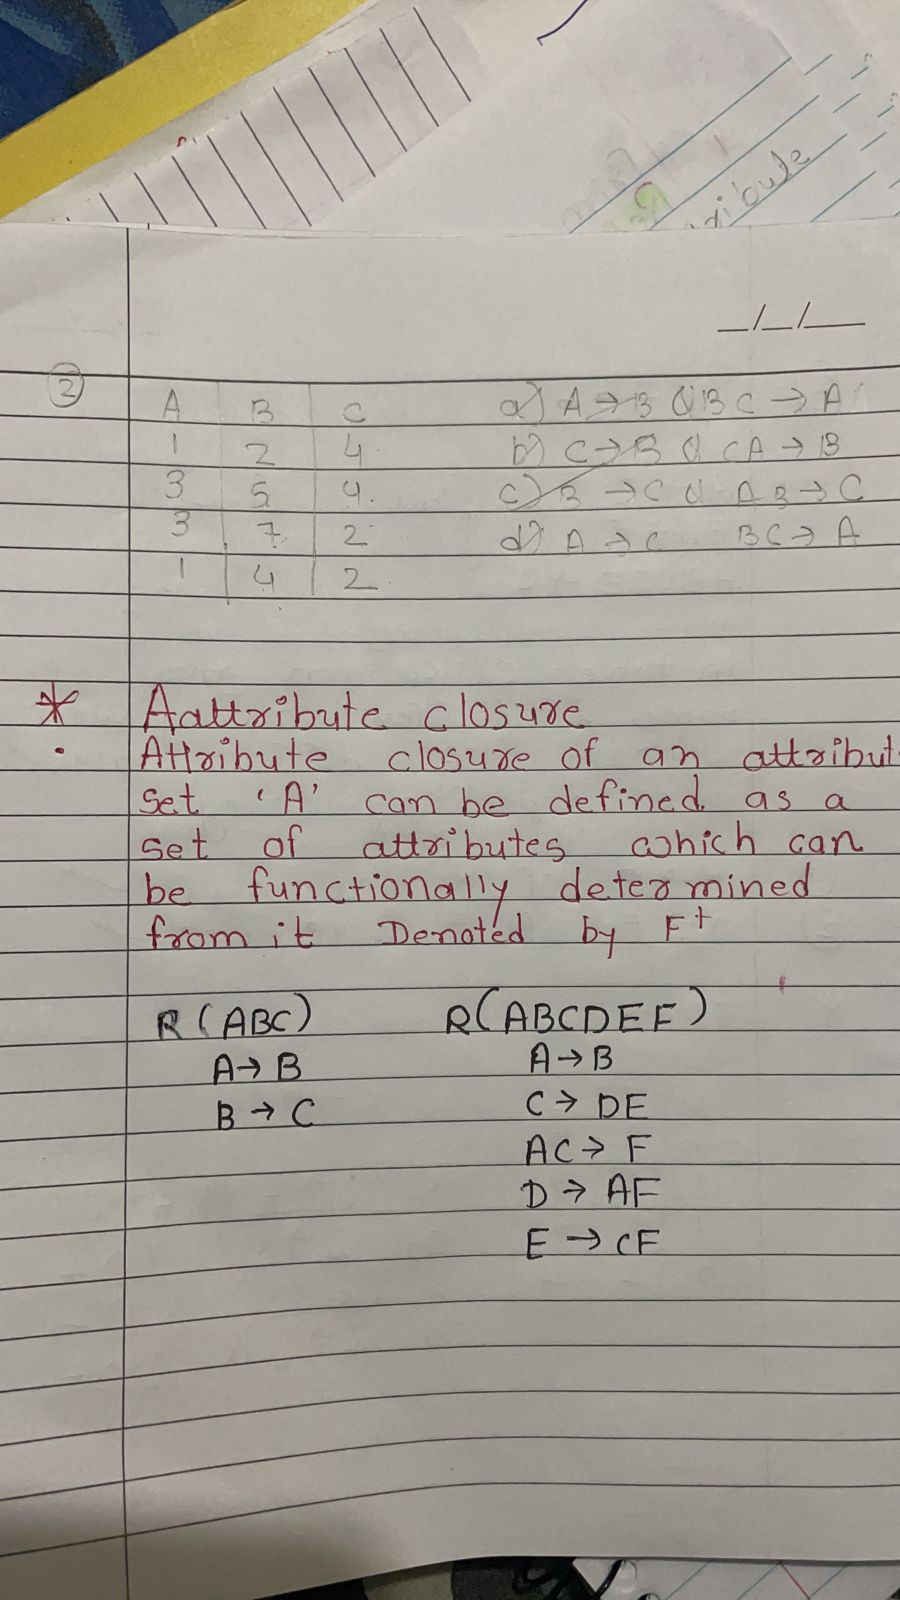 xibute
_/_/_
2
A B C a) A → B & BC → A
1 2 4 b) C → B & CA → B
3 5 4 c) B → C & AB → C
3 7 2 d) A → C BC → A
1 4 2
* Aattribute closure
• Attribute closure of an attribut
set 'A' can be defined as a
set of attributes which can
be functionally determined
from it Denoted by F+
R(ABC) R(ABCDEF)
A → B A → B
B → C C → DE
AC → F
D → AF
E → CF